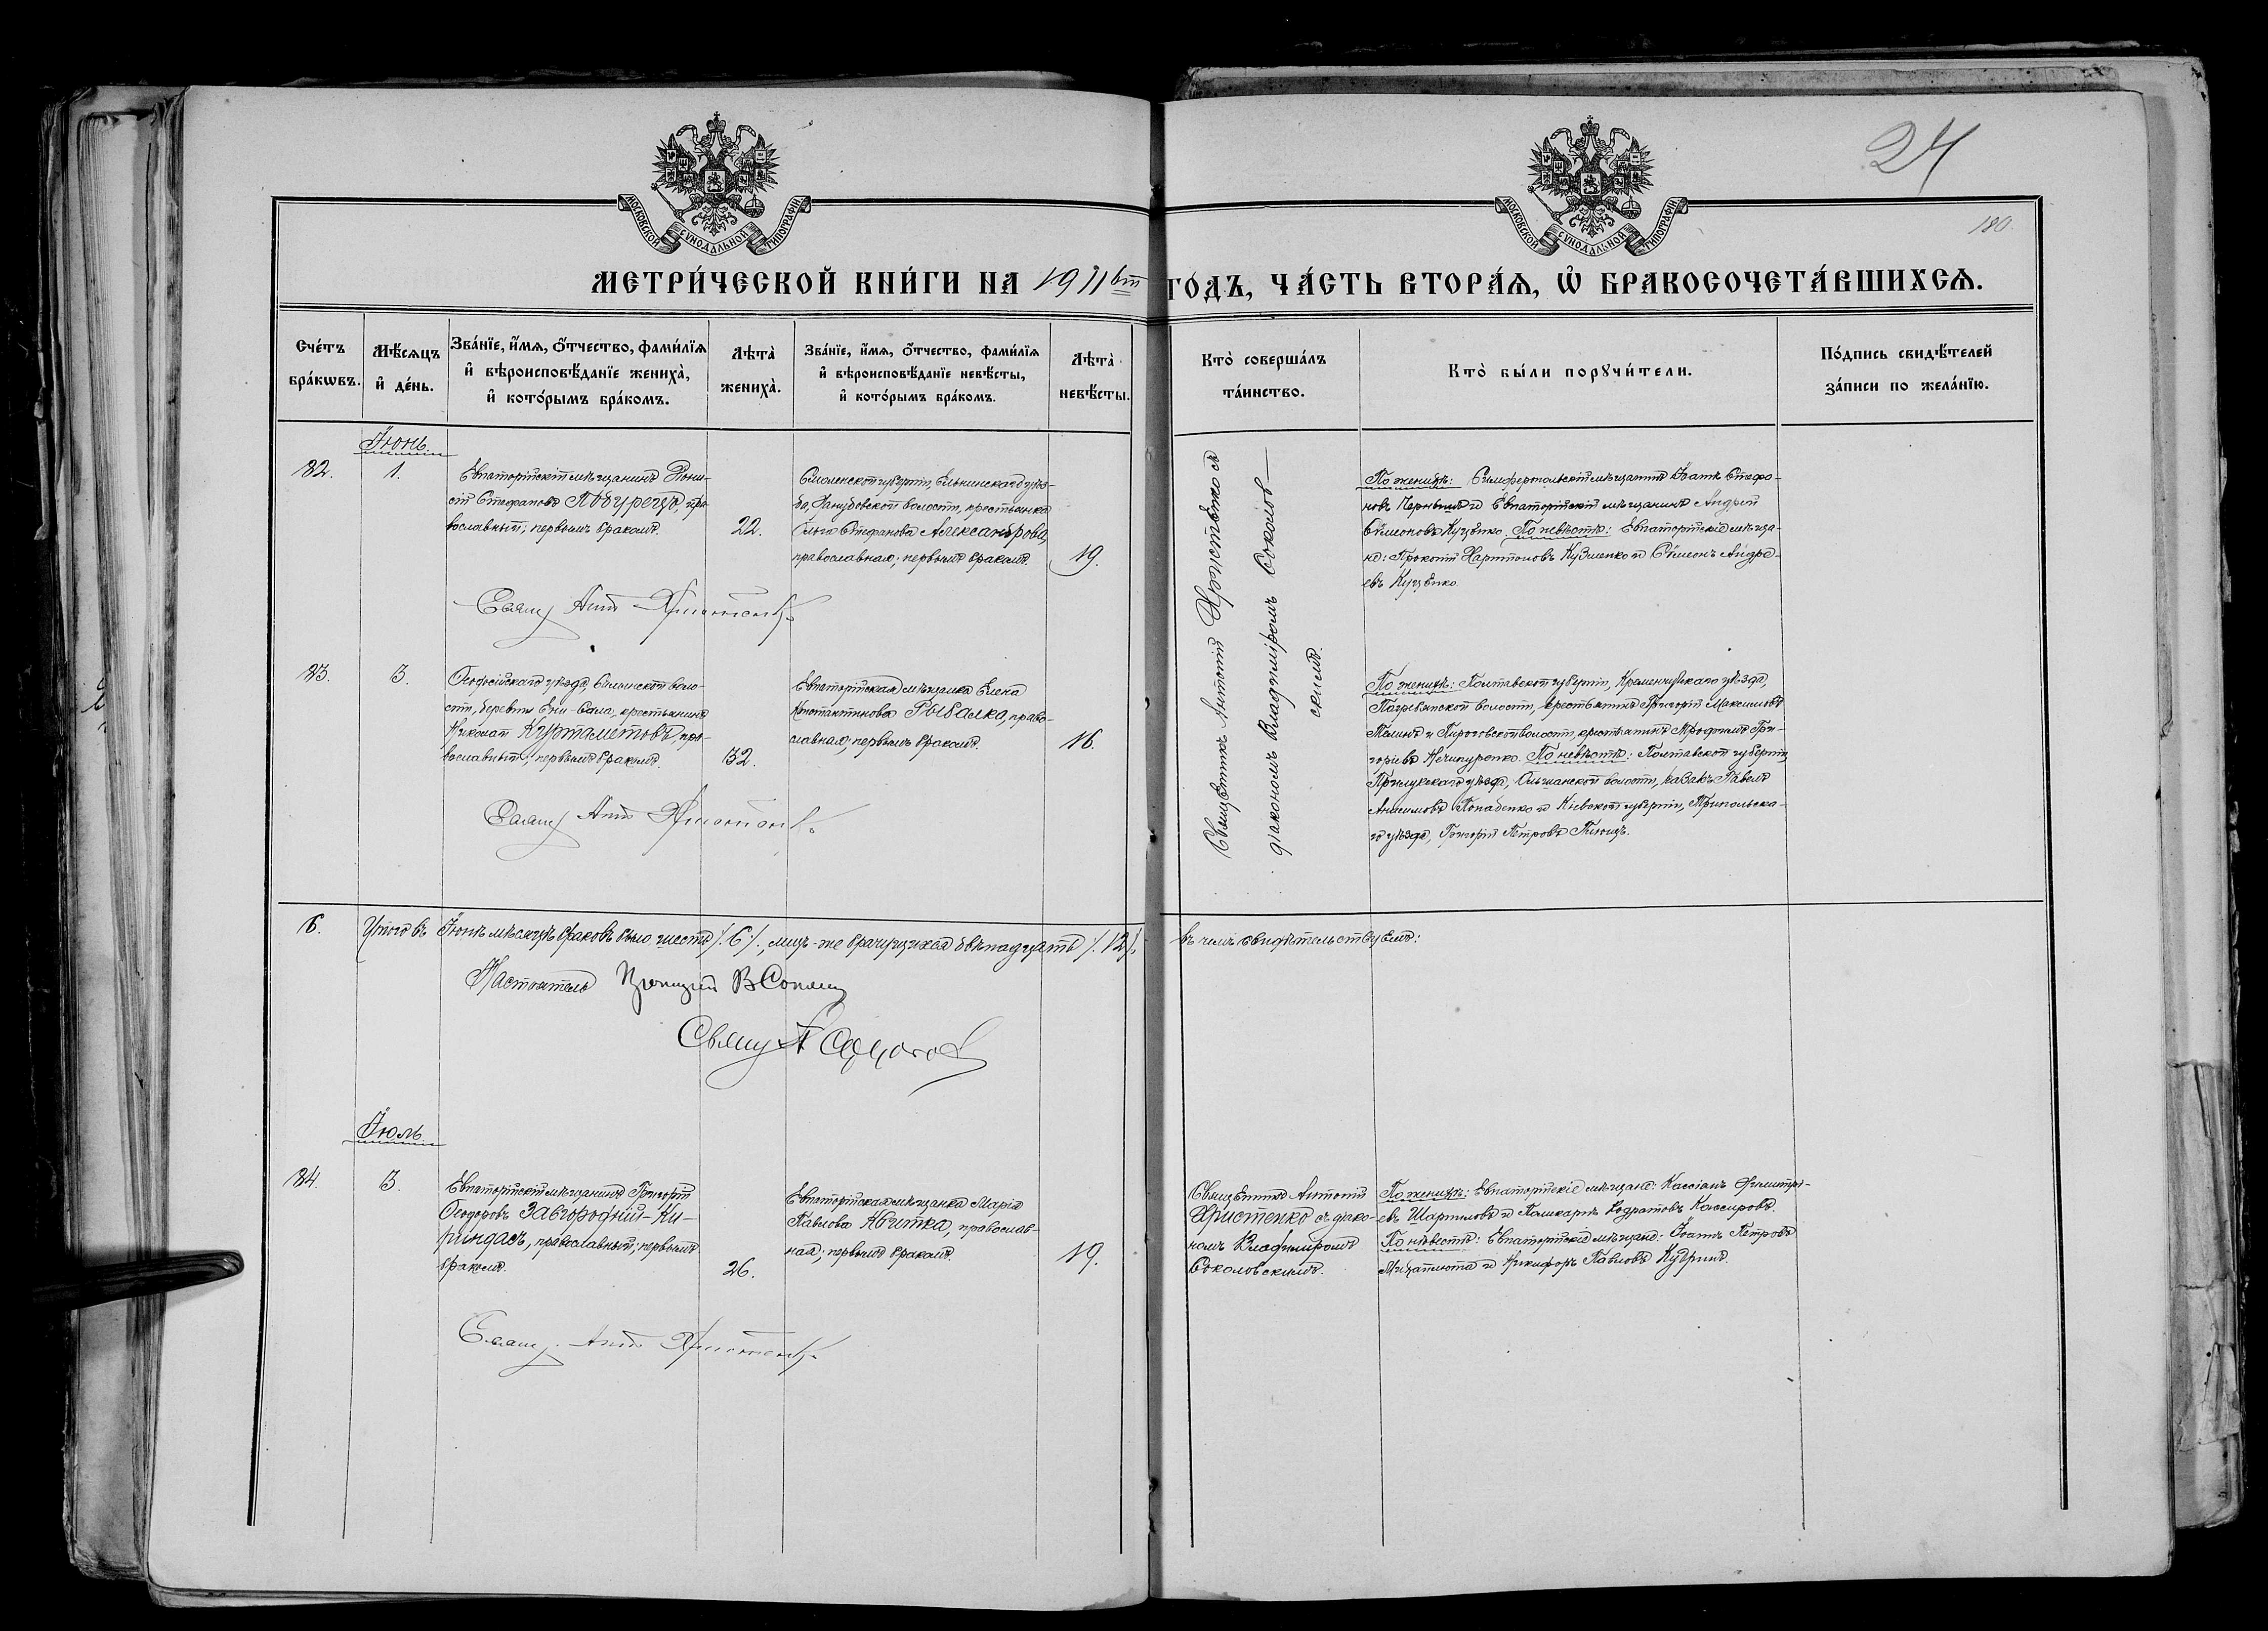 24
180.
МОСКОВСКОЙ СѴНОДАЛЬНОЙ ТИПОГРАФІИ
МОСКОВСКОЙ СѴНОДАЛЬНОЙ ТИПОГРАФІИ
МЕТРИ́ЧЕСКОЙ КНИ́ГИ НА 1911 ый ГОДЪ, ЧА́СТЬ ВТОРА́Ѧ, Ѡ҆ БРАКОСОЧЕТА́ВШИХСѦ.
Сче́тъ бра́кѡвъ.
Мѣ́сяцъ и҆ де́нь.
Зва́нїе, и҆́мѧ, ѻ҆́тчество, фами́лїѧ
и҆ вѣроисповѣ́данїе жениха̀,
и҆ кото́рымъ бра́комъ.
Лѣта̀ жениха̀.
Зва́нїе, и҆́мѧ, ѻ҆́тчество, фами́лїѧ
и҆ вѣроисповѣ́данїе невѣ́сты,
и҆ кото́рымъ бра́комъ.
Лѣта̀ невѣ́сты.
Кто̀ соверша́лъ
та́инство.
Кто̀ бы́ли порꙋчи́тели.
По́дпись свидѣ́телей
за́писи по жела́нїю.
Іюнь
82.
1.
Евпаторійскій мѣщанинъ Діони-
сій Стефановъ Побурецъ, пра-
вославный; первымъ бракомъ.
22.
Смоленской губерніи, Ельнинскаго уѣз-
да, волости, крестьянка
Ольга Стефанова Александрова,
православная; первымъ бракомъ.
19.
Священникъ Антоній Христенко съ
діакономъ Владиміромъ Соколов-
скимъ.
По женихѣ: Симферопольскій мѣщанинъ Іоаннъ Стефа-
новъ Черныш и Евпаторійскій мѣщанинъ Андрей
Симеоновъ Куценко. По невѣстѣ: Евпаторійскіе мѣща-
не: Прокопій Харитоновъ Кузменко и Симеонъ Андре-
евъ Куценко.
Свящ Ант Христенко
83.
3.
Ѳеодосійскаго уѣзда, Салынской воло-
сти, деревни Ени-Сала, крестьянинъ
Николай Куртаметовъ, пра-
вославный; первымъ бракомъ.
32.
Евпаторійская мѣщанка Елена
Константинова Рыбалка, право-
славная; первымъ бракомъ.
16.
По женихѣ: Полтавской губерніи, Кременчугскаго уѣзда,
волости, крестьянинъ Григорій Максимовъ
и Пироговской волости, крестьянинъ Трофимъ Гри-
горіевъ Нечипуренко. По невѣстѣ: Полтавской губерніи,
Прилукскаго уѣзда, Ольшанской волости, казакъ Павелъ
Анисимовъ и Кіевской губерніи, Трипольска-
го уѣзда, Григорій Петровъ
Свящ Ант Христенко
6.
Итого въ Іюнѣ мѣсяцѣ браковъ было шесть /. 6 /., лицъ-же брачущихся двѣнадцать /. 12 /. въ чемъ свидѣтельствуемъ:
Настоятель Протоіерей В
Свящ А
Іюль
84.
3.
Евпаторійскій мѣщанинъ Григорій
Ѳеодоровъ Завгородній-Ки-
риндасъ, православный; первымъ
бракомъ.
26.
Евпаторійская мѣщанка Марія
Павлова Квитка, православ-
ная; первымъ бракомъ.
19.
Священникъ Антоній
Христенко съ діако-
номъ Владиміромъ
Соколовскимъ.
По женихѣ: Евпаторійскіе мѣщане: Кассіанъ Димитрі-
евъ Шарниловъ и Поликарпъ Кодратовъ Касировъ.
По невѣстѣ: Евпаторійскіе мѣщане: Іоаннъ Петровъ
и Никифоръ Павловъ Кудринъ.
Свящ. Ант Христенко